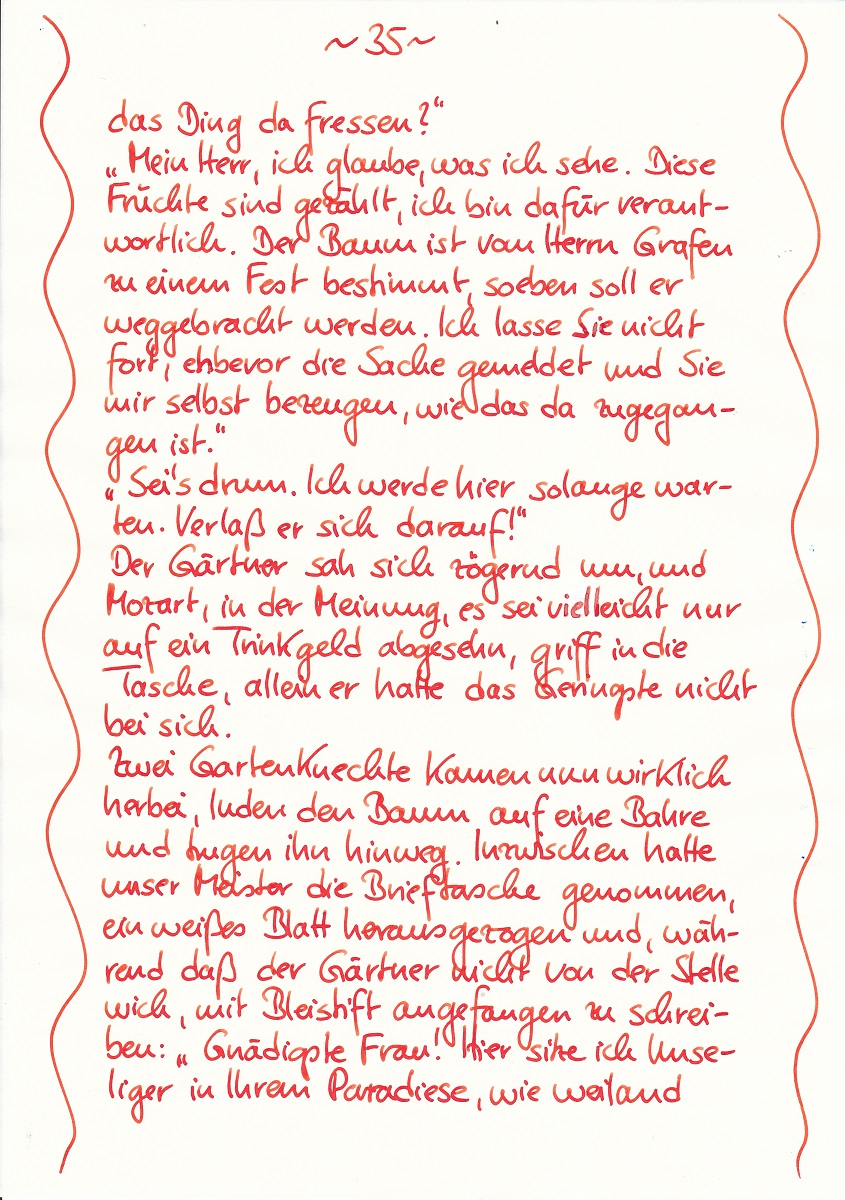 ~ 35 ~
das Ding da fressen?“
„Mein Herr, ich glaube, was ich sehe. Diese
Früchte sind gezählt, ich bin dafür verant-
wortlich. Der Baum ist vom Herrn Grafen
zu einem Fest bestimmt, soeben soll er
weggebracht werden. Ich lasse Sie nicht
fort, ehbevor die Sache gemeldet und Sie
mir selbst bezeugen, wie das da zugegan-
gen ist.“
„Sei's drum. Ich werde hier solange war-
ten. Verlaß er sich darauf!“
Der Gärtner sah sich zögernd um, und
Mozart, in der Meinung, es sei vielleicht nur
auf ein Trinkgeld abgesehn, griff in die
Tasche, allein er hatte das Geringste nicht
bei sich.
Zwei Gartenknechte kamen nun wirklich
herbei, luden den Baum auf eine Bahre
und trugen ihn hinweg. Inzwischen hatte
unser Meister die Brieftasche genommen,
ein weißes Blatt herausgezogen und, wäh-
rend daß der Gärtner nicht von der Stelle
wich, mit Bleistift angefangen zu schrei-
ben: „Gnädigste Frau! Hier sitze ich Unse-
liger in Ihrem Paradiese, wie weiland